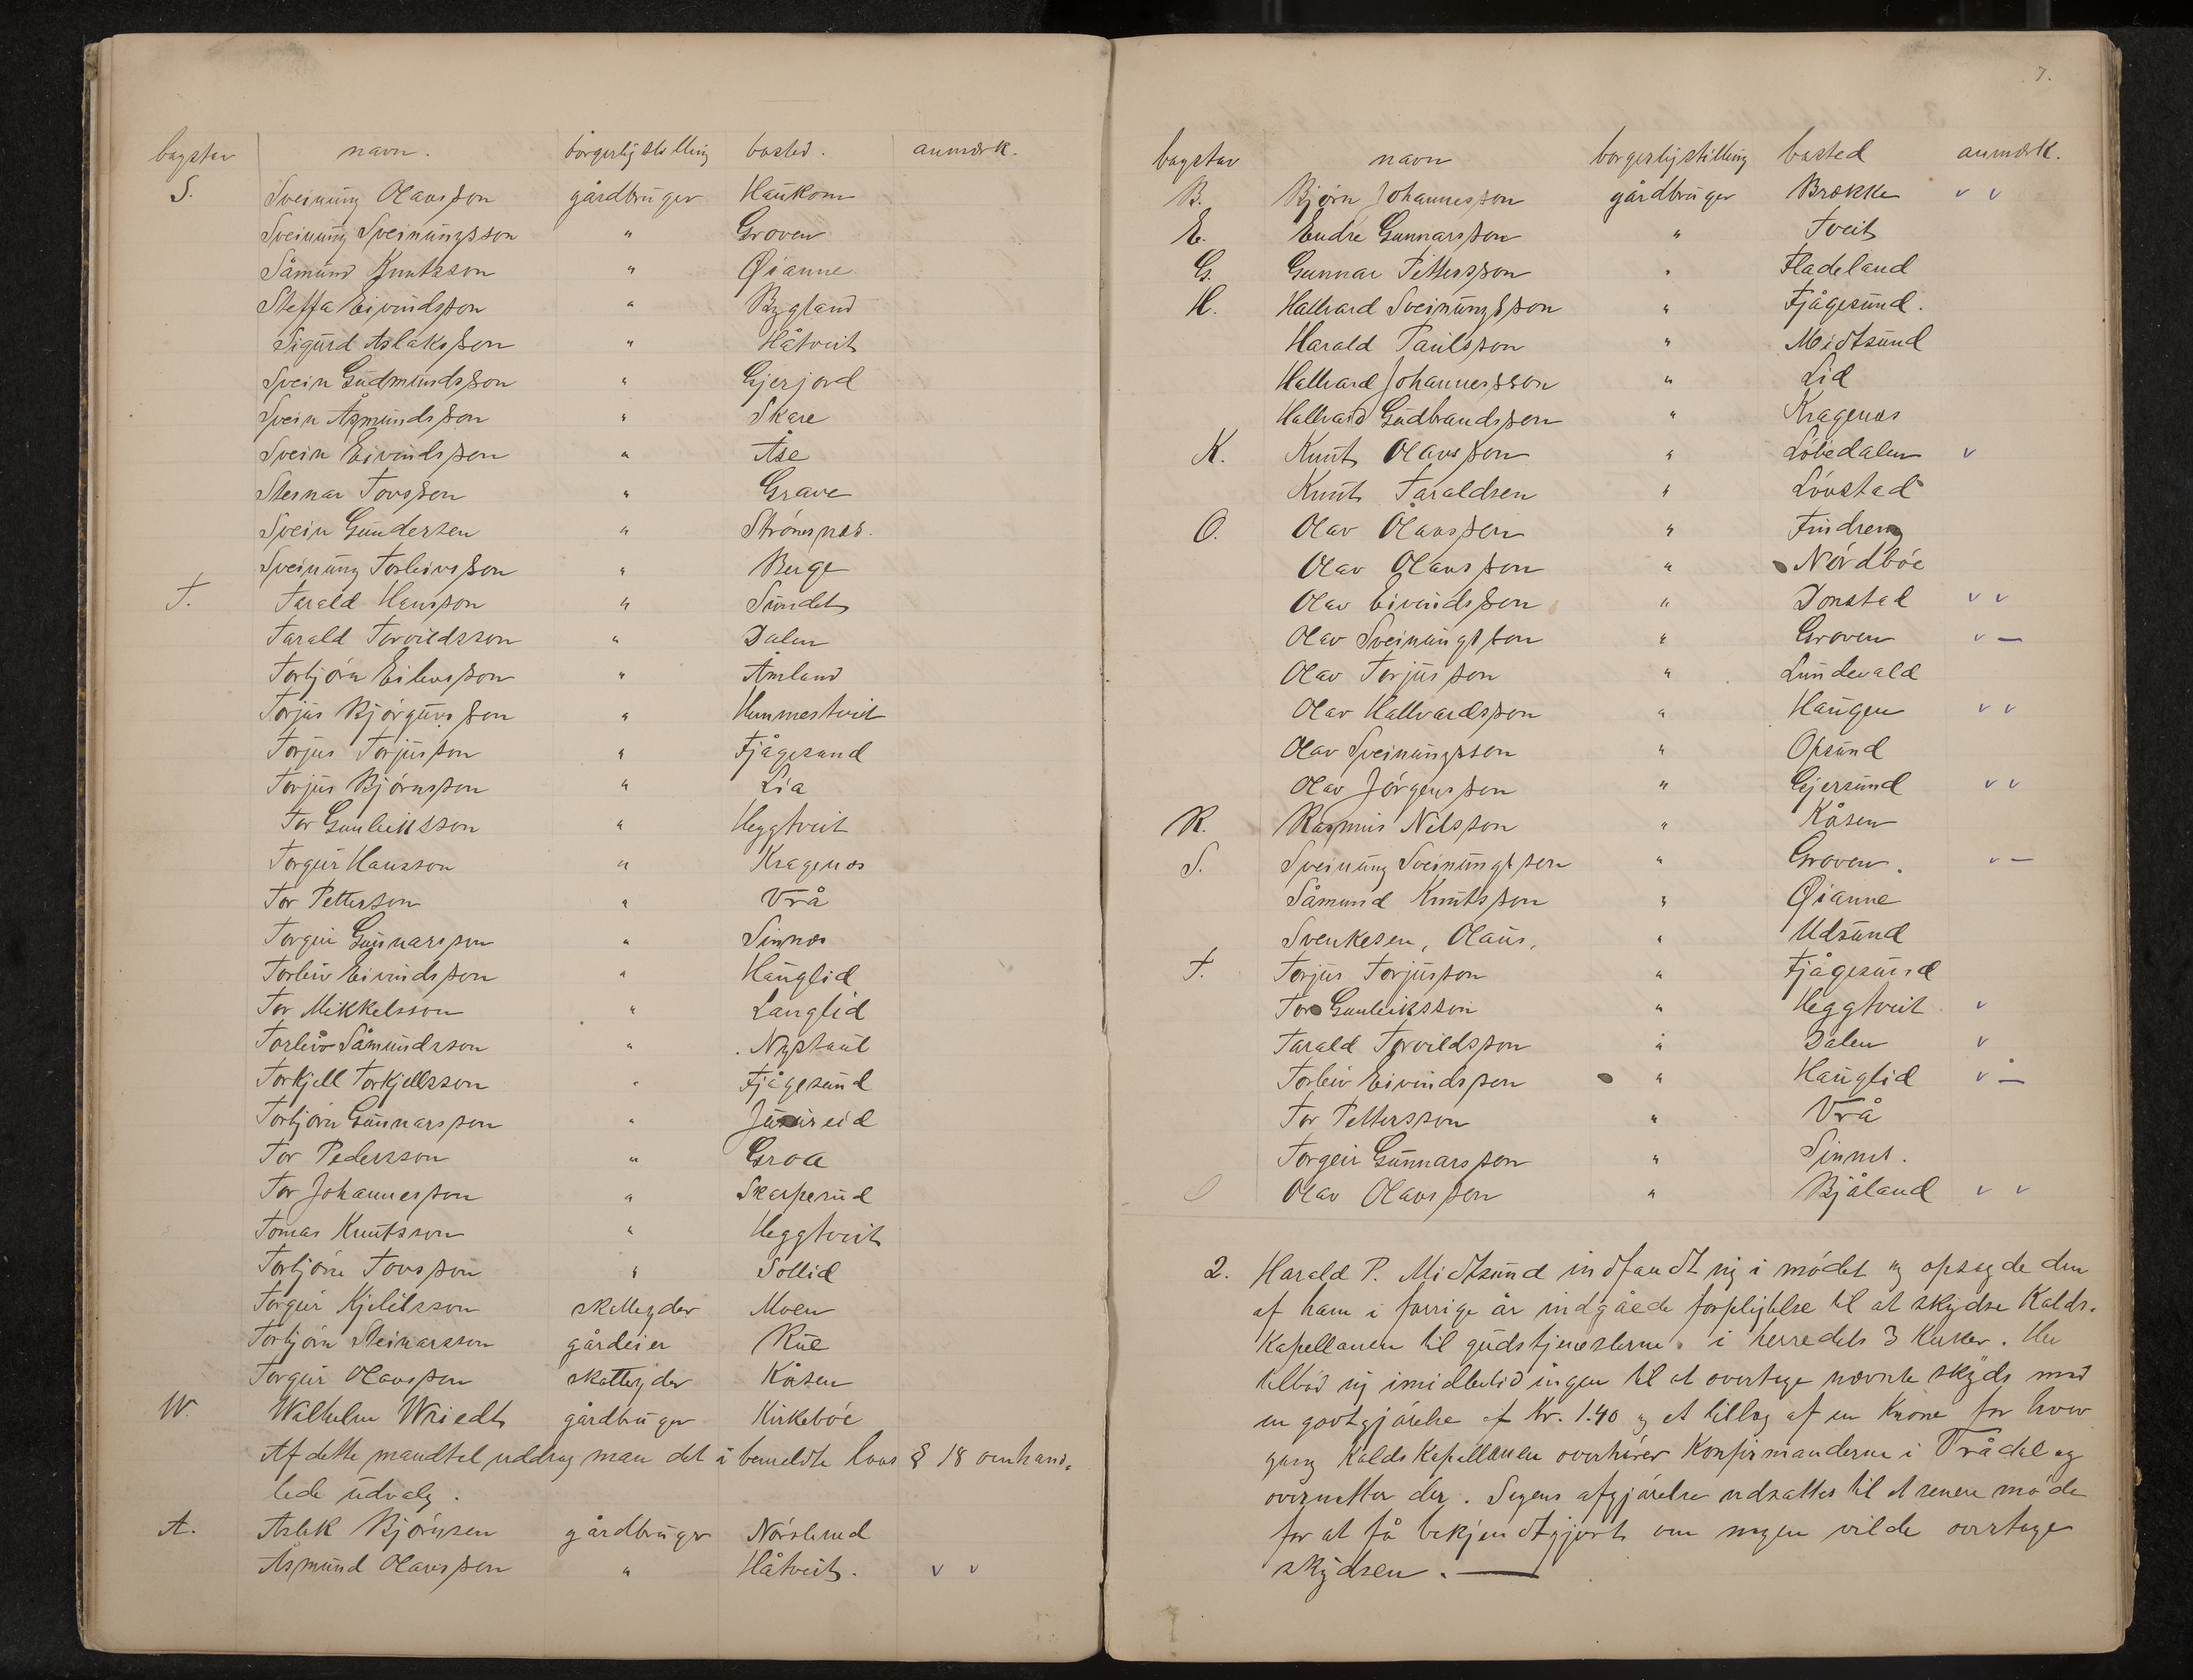 bogstav navn. borgerlig stilling bosted. anmærk.
S. Sveinung Olavsson gårdbruger Haukom
Sveinung Sveinungsson " Groven
Såmund Knutsson " Øianne
Steffa Eivindsson " Bygland
Sigurd Aslaksson " Håtveit
Svein Gudmundsson " Gjerjord
Svein Åsmundsson " Skare
Svein Eivindsson " Åse
Steinar Tovsson " Grave
Svein Gundersen " Strónesnæs.
Sveinung Torleivsson " Berge
T. Tarald Hansson " Sundet
Tarald Torvildsson " Dalen
Torbjórn Eilevsson " Åmland
Torjus Bjórguvsson " Hemmestveit
Torjus Torjusson " Fjågesund
Torjus Bjórnsson " Lia
Tor Gunleiksson " Heggtveit
Torgeir Hansson " Kragenæs
Tor Petterson " Vrå
Torgeir Gunnarsson " Sinnæs
Torleiv Eivindsson " Hauglid
Tor Mikkelsson " Langlid
Torleiv Såmundsson " Nystaul
Torkjell Torkjellsson " Fjågesund
Torbjórn Gunnarsson "
Tor Pedersson " Groa
Tor Johannesson " Skarperud
Tomas Knutsson " Heggtveit
Torbjórn Tovsson " Sollid
Torgeir Kjetilsson skatteyder Moen
Torbjórn Steinarsson gårdeier Rue
Torgeir Olavsson skatteyder Kåsen
W. Wilhelm Wriedt gårdbruger Kirkebóe
Af dette mandtal uddrog man det i bemeldte lovs § 18 omhand-
lede udvalg.
A. Aslak Bjórnsen gårdbruger Nórslund
Åsmund Olavsson " Håtveit. v v
7.
bogstav navn borgerligstilling bosted anmærk.
B. Bjórn Johannesson gårdbruger Brække v v
E. Endre Gunnarsson " Tveit
G. Gunnar Pettersson " Fladeland
H. Hallvard Sveinungsson " Fjågesund.
Harald Paulsson " Midtsund
Hallvard Johannesson " Lid
Hallvard Gudbrandsson " Kragenæs
K. Knut Olavsson " Lóbedalen v
Knut Taraldsen " Lóvstad
O. Olav Olavsson " Findreng
Olav Olavsson " Nórdbóe
Olav Eivindsson " Donstad v v
Olav Sveinungsson " Groven v —
Olav Torjusson " Lundevald
Olav Hallvardsson " Haugen v v
Olav Sveinungsson " Opsund
Olav Jórgensson " Gjersund v v
R. Rasmus Nilsson " Kåsen
S. Sveinung Sveinungsson " Groven. v —
Såmund Knutsson " Øianne
Svenkesen, Olaus, " Udsund
T. Torjus Torjusson " Fjågesund
Tor Gunleiksson " Heggtveit v
Tarald Torvildsson " Dalen v
Torleiv Eivindsson " Hauglid v —
Tor Pettersson " Vrå
Torgeir Gunnarsson " Sinnes.
O Olav Olavsson " Bjåland v v
2. Harald P. Midtsund indfandt sig i módet og opsagde den
af ham i forrige år indgåede forpligtelse til at skydse Kalds-
kapellanen til gudstjenesterne i herredets 3 kirker. Han
tilbód sig imidlertid ingen til at overtage nævnte skyds mod
en godtgjórelse af Kr. 1.40 og et tillæg af en Krone for hver
gang Kaldskapellanen overhórer Konfirmanderne i Trådal og
overnatter der. Sagens afgjórelse udsattes til et senere móde
for at få bekjendtgjort om nogen vilde overtage
skydsen. —